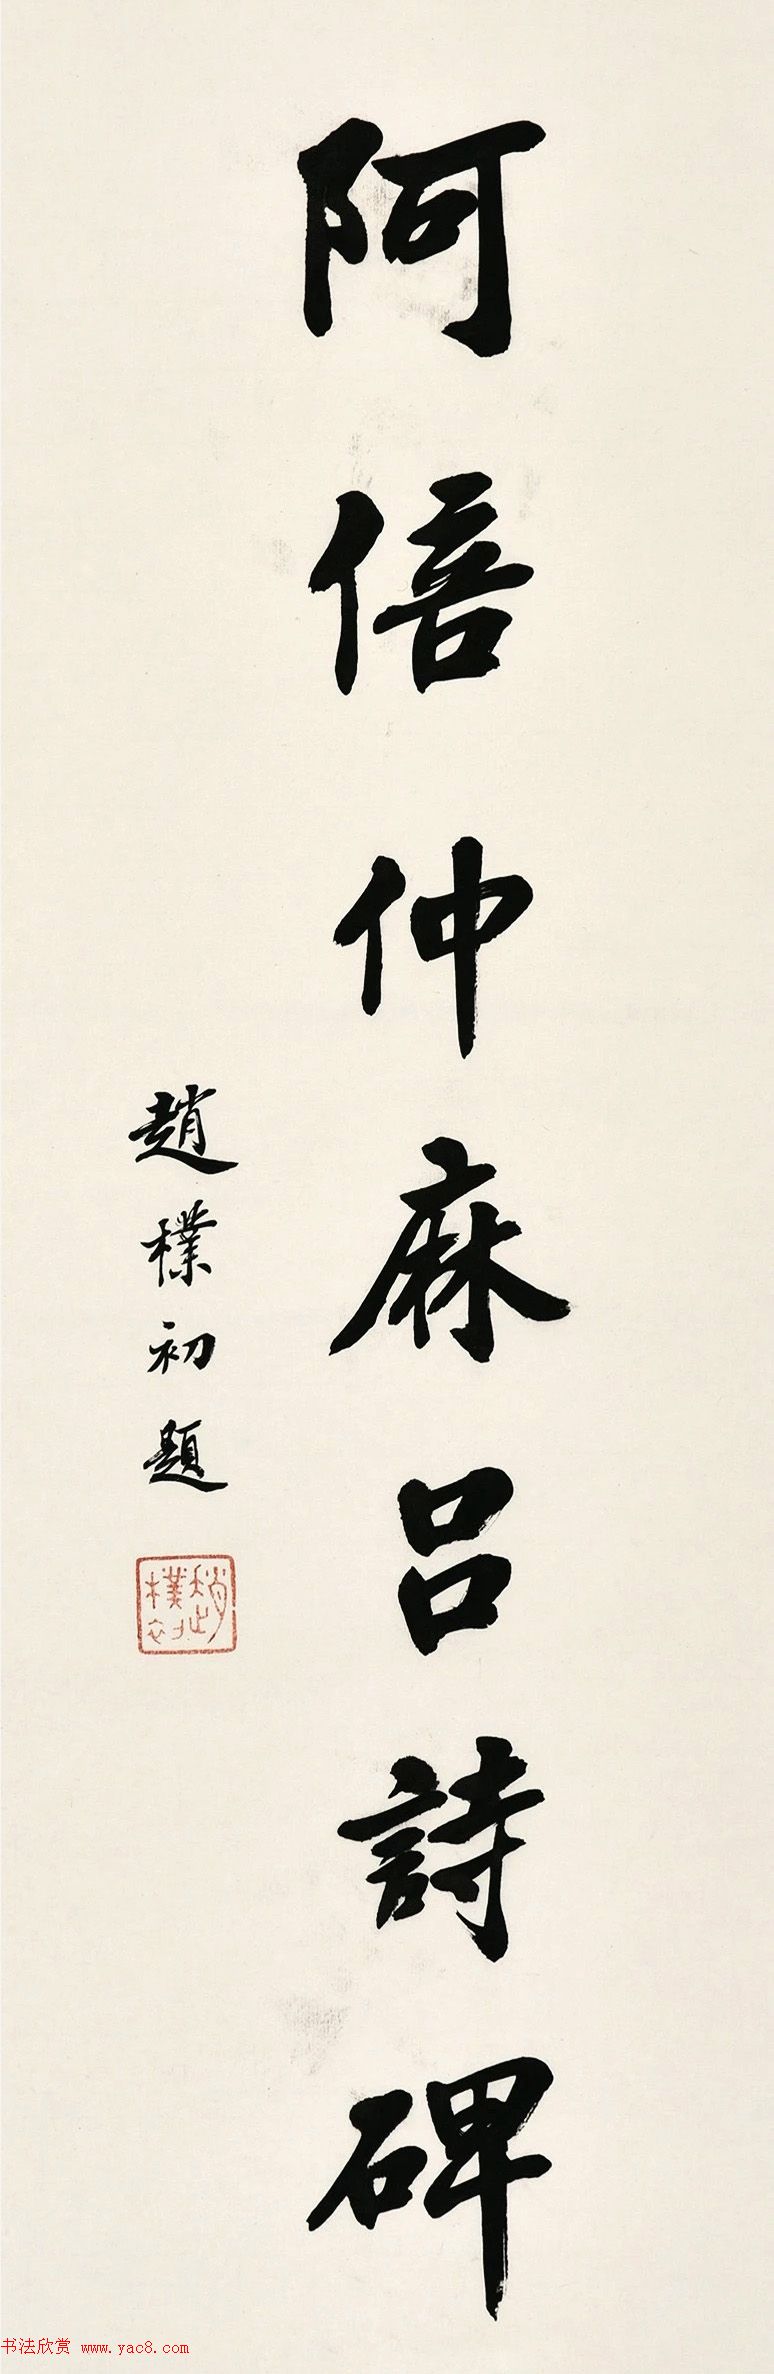 阿倍仲麻呂詩碑
趙樸初題
趙樸初
书法欣赏 www.yac8.com